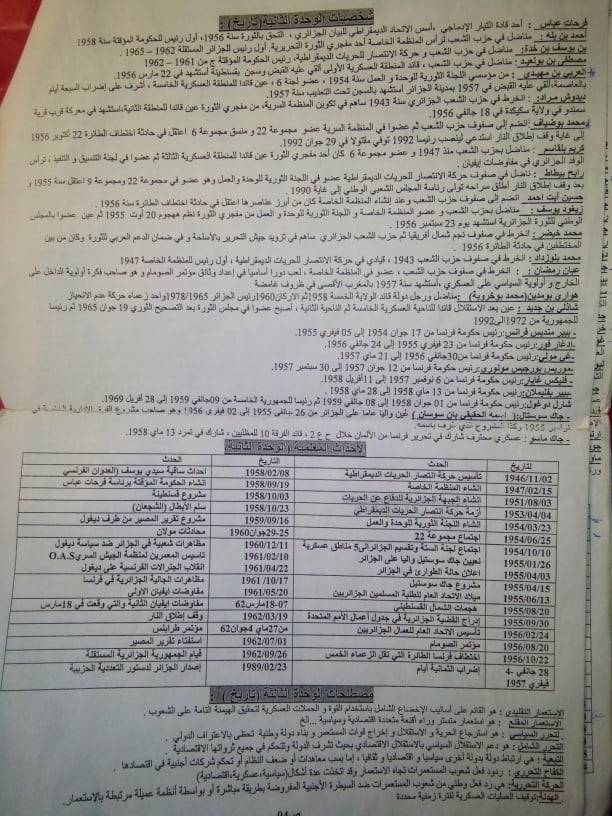 شخصيات الوحدة الثانية(تاريخ) :
فرحات عباس : أحد قادة التيار الإدماجي ،أسس الاتحاد الديمقراطي للبيان الجزائري ، التحق بالثورة سنة 1956، أول رئيس للحكومة المؤقتة سنة 1958
أحمد بن بلة : مناضل في حزب الشعب ترأس المنظمة الخاصة أحد مفجري الثورة التحريرية. أول رئيس للجزائر المستقلة 1962 – 1965.
بن يوسف بن خدة: مناضل في حزب الشعب و حركة الانتصار للحريات الديمقراطية، رئيس الحكومة المؤقتة ج من 1961 – 1962
مصطفى بن بولعيد : مناضل في حزب الشعب ، قائد المنطقة العسكرية الأولى ألقي عليه القبض وسجن بقسنطينة استشهد في 22 مارس 1956.
العربي بن مهيدي : من مؤسسي اللجنة الثورية للوحدة و العمل سنة 1954 ، عضو لجنة 6 ، عين قائدا للمنطقة العسكرية الخامسة ، أشرف على إضراب السبعة أيام
بالعاصمة،ألقي عليه القبض في 1957 بمدينة الجزائر استشهد بالسجن تحت التعذيب سنة 1957.
ديدوش مراد: انخرط في حزب الشعب الجزائري سنة 1943 ساهم في تكوين المنظمة السرية، من مفجري الثورة عين قائدا للمنطقة الثانية،استشهد في معركة قرب قرية
سمندو في ولاية سكيكدة في 18 جانفي 1956.
محمد بوضياف : انضم إلى صفوف حزب الشعب ثم عضوا في المنظمة السرية عضو مجموعة 22 و منسق مجموعة 6 اعتقل في حادثة اختطاف الطائرة 22 أكتوبر 1956
إلى غاية وقف إطلاق النار استدعي لينصب رئيسا 1992 توفي مقتولا في 29 جوان 1992.
كريم بلقاسم : مناضل بحزب الشعب منذ 1947 و عضو مجموعة 6 كان أحد مفجري الثورة عين قائدا للمنطقة العسكرية الثالثة ثم عضوا في لجنة التنسيق و التنفيذ ، ترأس
الوفد الجزائري في مفاوضات إيفيان
رابح بيطاط : ناضل في صفوف حركة الانتصار للحريات الديمقراطية عضو في اللجنة الثورية للوحدة والعمل وهو عضو في مجموعة 22 ومجموعة 9 اعتقل سنة 1955 و
بعد وقف إطلاق النار أطلق سراحه تولى رئاسة المجلس الشعبي الوطني إلى غاية 1990 .
حسين آيت أحمد : انضم إلى صفوف حزب الشعب وعند إنشاء المنظمة الخاصة كان من أبرز عناصرها اعتقل في حادثة اختطاف الطائرة سنة 1956
زيغود يوسف : مناضل بحزب الشعب و عضو المنظمة الخاصة و اللجنة الثورية للوحدة و العمل من مفجري الثورة نظم هجوم 20 أوت 1955 ثم عين عضوا بالمجلس
الوطني للثورة الجزائرية استشهد يوم 23 سبتمبر 1956 .
محمد خيضر : انخرط في صفوف نجم شمال افريقيا ثم حزب الشعب الجزائري ساهم في تزويد جيش التحرير بالأسلحة و في ضمان الدعم العربي للثورة وكان من بين
المختطفين في حادثة الطائرة 1956 .
محمد بلوزداد : انخرط في صفوف حزب الشعب 1943 ، قيادي في حركة الانتصار للحريات الديمقراطية ، أول رئيس للمنظمة الخاصة 1947
عبان رمضان : انخرط في صفوف حزب الشعب ، عضو في المنظمة الخاصة ، لعب دورا أساسيا في إعداد وثائق مؤتمر الصومام و هو صاحب فكرة أولوية الداخل على
الخارج و أولوية السياسي على العسكري ،استشهد سنة 1957 بالمغرب الأقصى في ظروف غامضة
هواري بومدين(محمد بوخروبة) :مناضل ورجل دولة قائد الولاية الخامسة 1958ثم الاركان1960ورئيس الجزائر 1978/1965واحد زعماء حركة عدم الانحياز
شاذلي بن جديد : عين بعد الاستقلال قائدا للناحية العسكرية الخامسة ثم الناحية الثانية ، أصبح عضوا في مجلس الثورة بعد التصحيح الثوري 19 جوان 1965 ثم رئيسا
للجمهورية من 1972الى1992
- بيير منديس فرانس: رئيس حكومة فرنسا من 17 جوان 1954 إلى 05 فيفري 1955.
-ادغار فور: رئيس حكومة فرنسا من 23 فيفري 1955 إلى 24 جانفي 1956.
-غي مولي: رئيس حكومة فرنسا من 30جانفي 1956 إلى 21 ماي 1957.
-موريس بورجيس مونوري: رئيس حكومة فرنسا من 12 جوان 1957 إلى 30 سبتمبر 1957.
- فليكس غايار: رئيس حكومة فرنسا من 6 نوفمبر 1957 إلى 11أفريل 1958.
-بيير بفليملان: رئيس حكومة فرنسا من 13 ماي 1958 إلى 28 ماي 1958.
شارل دوغول: رئيس حكومة فرنسا من 01 جوان 1958 إلى 08 جانفي 1959 ثم رئيسا للجمهورية الخامسة من 09جانفي 1959 إلى 28 أفريل 1969.
-جاك سوستال:( إسمه الحقيقي بان سوسان ) عين واليا عاما على الجزائر من 26 جانفي 1955 إلى 02 فيفري 1956 وهو صاحب مشروع
1955 وكذا المشروع الذي عرف باسمه.
- جاك ماسو : عسكري محترف شارك في تحرير فرنسا من الألمان خلال ح ع 2 ، قائد الفرقة 10 للمظليين ، شارك في تمرد 13 ماي 1958.
الأحداث المعلمية (الوحدة الثانية)
التاريخ الحدث التاريخ الحدث
1946/11/02 تأسيس حركة انتصار الحريات الديمقراطية 1958/02/08 احداث ساقية سيدي يوسف (العدوان الفرنسي
1947/02/15 انشاء المنظمة الخاصة 1958/09/19 انشاء الحكومة المؤقتة برئاسة فرحات عباس
1951/08/03 انشاء الجبهة الجزائرية للدفاع عن الحريات 1958/10/03 مشروع قسنطينة
1953/04/04 أزمة حركة انتصار الحريات الديمقراطي 1958/10/23 سلم الأبطال (الشجعان)
1954/03/23 انشاء اللجنة الثورية للوحدة والعمل 1959/09/16 مشروع تقرير المصير من طرف ديغول
1954/06/25 اجتماع مجموعة 22 25-29جوان1960 محادثات مولان
1954/10/10 اجتماع لجنة الستة وتقسيم الجزائرالى5 مناطق عسكرية 1960/12/11 مظاهرات شعبية في الجزائر ضد سياسة ديغول
1955/01/26 تعيين جاك سوستيل واليا على الجزائر 1961/02/10 تأسيس المعمرين لمنظمة الجيش السري O.A.S
1955/04/03 اعلان حالة الطوارئ في الجزائر 1961/04/22 انقلاب الجنرالات الفرنسية على ديغول
1955/04/15 مشروع جاك سوستيل 1961/10/17 مظاهرات الجالية الجزائرية في فرنسا
1955/06/13 ميلاد الاتحاد العام للطلبة المسلمين الجزائيين 1961/05/20 مفاوضات ايفيان الاولى
1955/08/20 هجمات الشمال القسنطيني 07-18مارس62 مفاوضات ايفيان الثانية والتي وقعت في 18مارس
1955/09/30 إدراج القضية الجزائرية في جدول أعمال الأمم المتحدة 1962/03/19 وقف إطلاق النار
1956/02/24 تأسيس الاتحاد العام للعمال الجزائريين من27ماي 4جوان62 مؤتمر طرابلس
1956/08/20 مؤتمر الصومام 1962/07/01 استفتاء تقرير المصير
1956/10/22 اختطاف فرنسا الطائرة التي تقل الزعماء الخمس 1962/09/26 قيام الجمهورية الجزائرية المستقلة
28 جانفي -4 إضراب الثمانية أيام 1989/02/23 إصدار الجزائر لدستور التعددية الحزبية
فيفري 1957
مصطلحات الوحدة الثالثة (تاريخ) :
الاستعمار التقليدي : هو القائم على أساليب الإخضاع الشامل باستخدام القوة و الحملات العسكرية لتحقيق الهيمنة التامة على الشعوب .
الاستعمار المقنع : هو استعمار متستر وراء أقنعة متعددة اقتصادية وسياسية ...الخ
التحرر السياسي : هو استرجاع الحرية و الاستقلال و إخراج قوات المستعمر و بناء دولة وطنية تحظى بالاعتراف الدولي .
التحرر الشامل : هو دعم الاستقلال السياسي بالاستقلال الاقتصادي بحيث تشرف الدولة وتتحكم في جميع ثرواتها الاقتصادية
التبعية : هي ارتباط دولة بدولة أخرى سياسيا و اقتصاديا و ثقافيا ، إما بسب معاهدات أو ضعف النظام أو تحكم شركات أجنبية في اقتصادها .
الكفاح التحرري : ردود فعل شعوب المستعمرات تجاه الاستعمار وقد اتخذت عدة أشكال(سياسية،عسكرية،اقتصادية)
الحركة التحررية: هي رد فعل وطني من شعوب المستعمرات ضد السيطرة الأجنبية المفروضة بطريقة مباشرة أو بواسطة أنظمة عميلة مرتبطة بالاستعمار.
الهدنة:توقيف العمليات العسكرية لفترة زمنية محددة
ص04